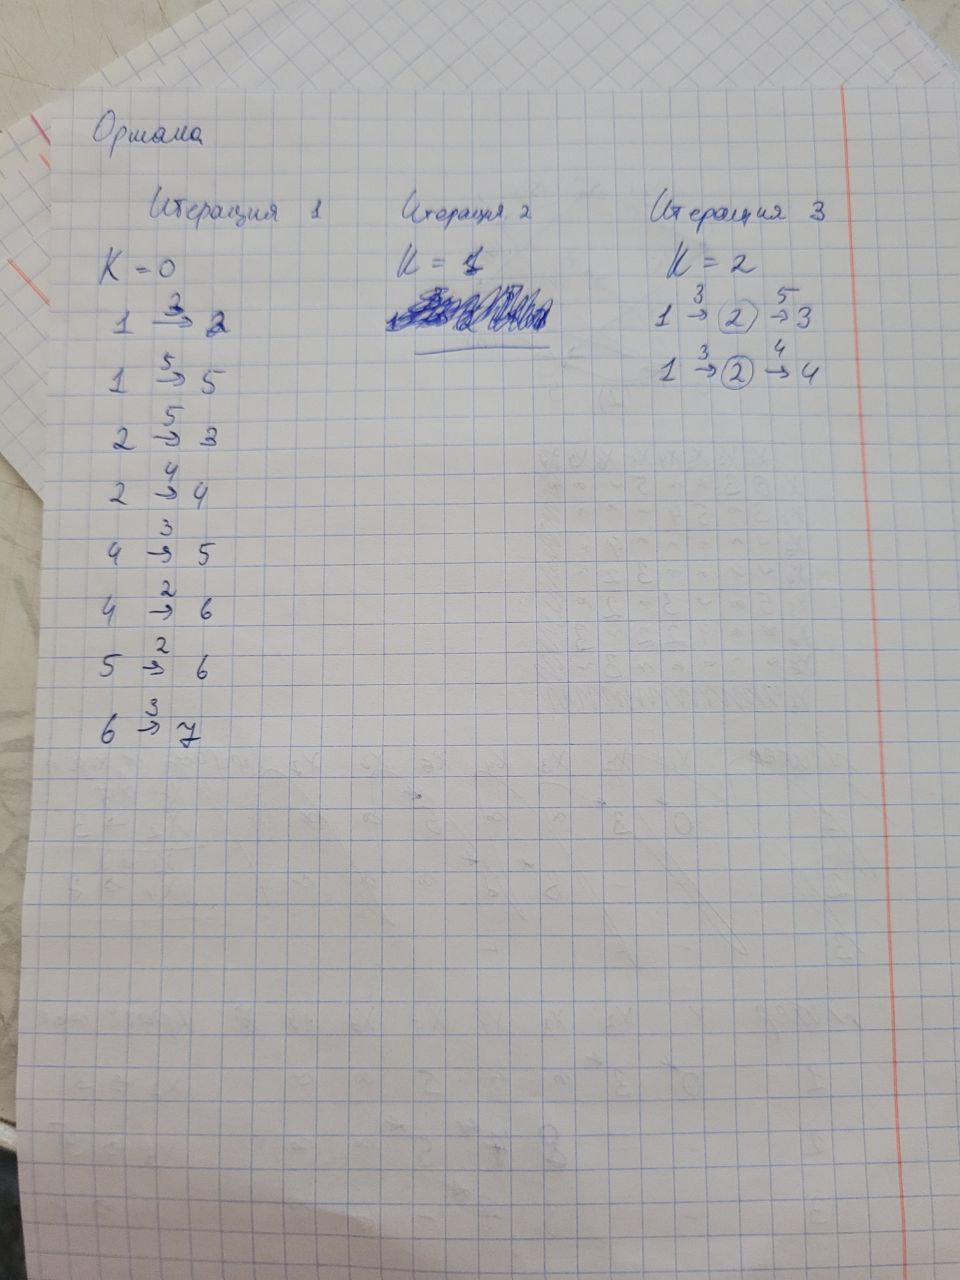 Ормала
Итерация 1
K = 0
1 3→ 2
1 5→ 5
2 5→ 3
2 4→ 4
4 3→ 5
4 2→ 6
5 2→ 6
6 3→ 7
Итерация 2
K = 1
Итерация 3
K = 2
1 3→ 2 5→ 3
1 3→ 2 4→ 4